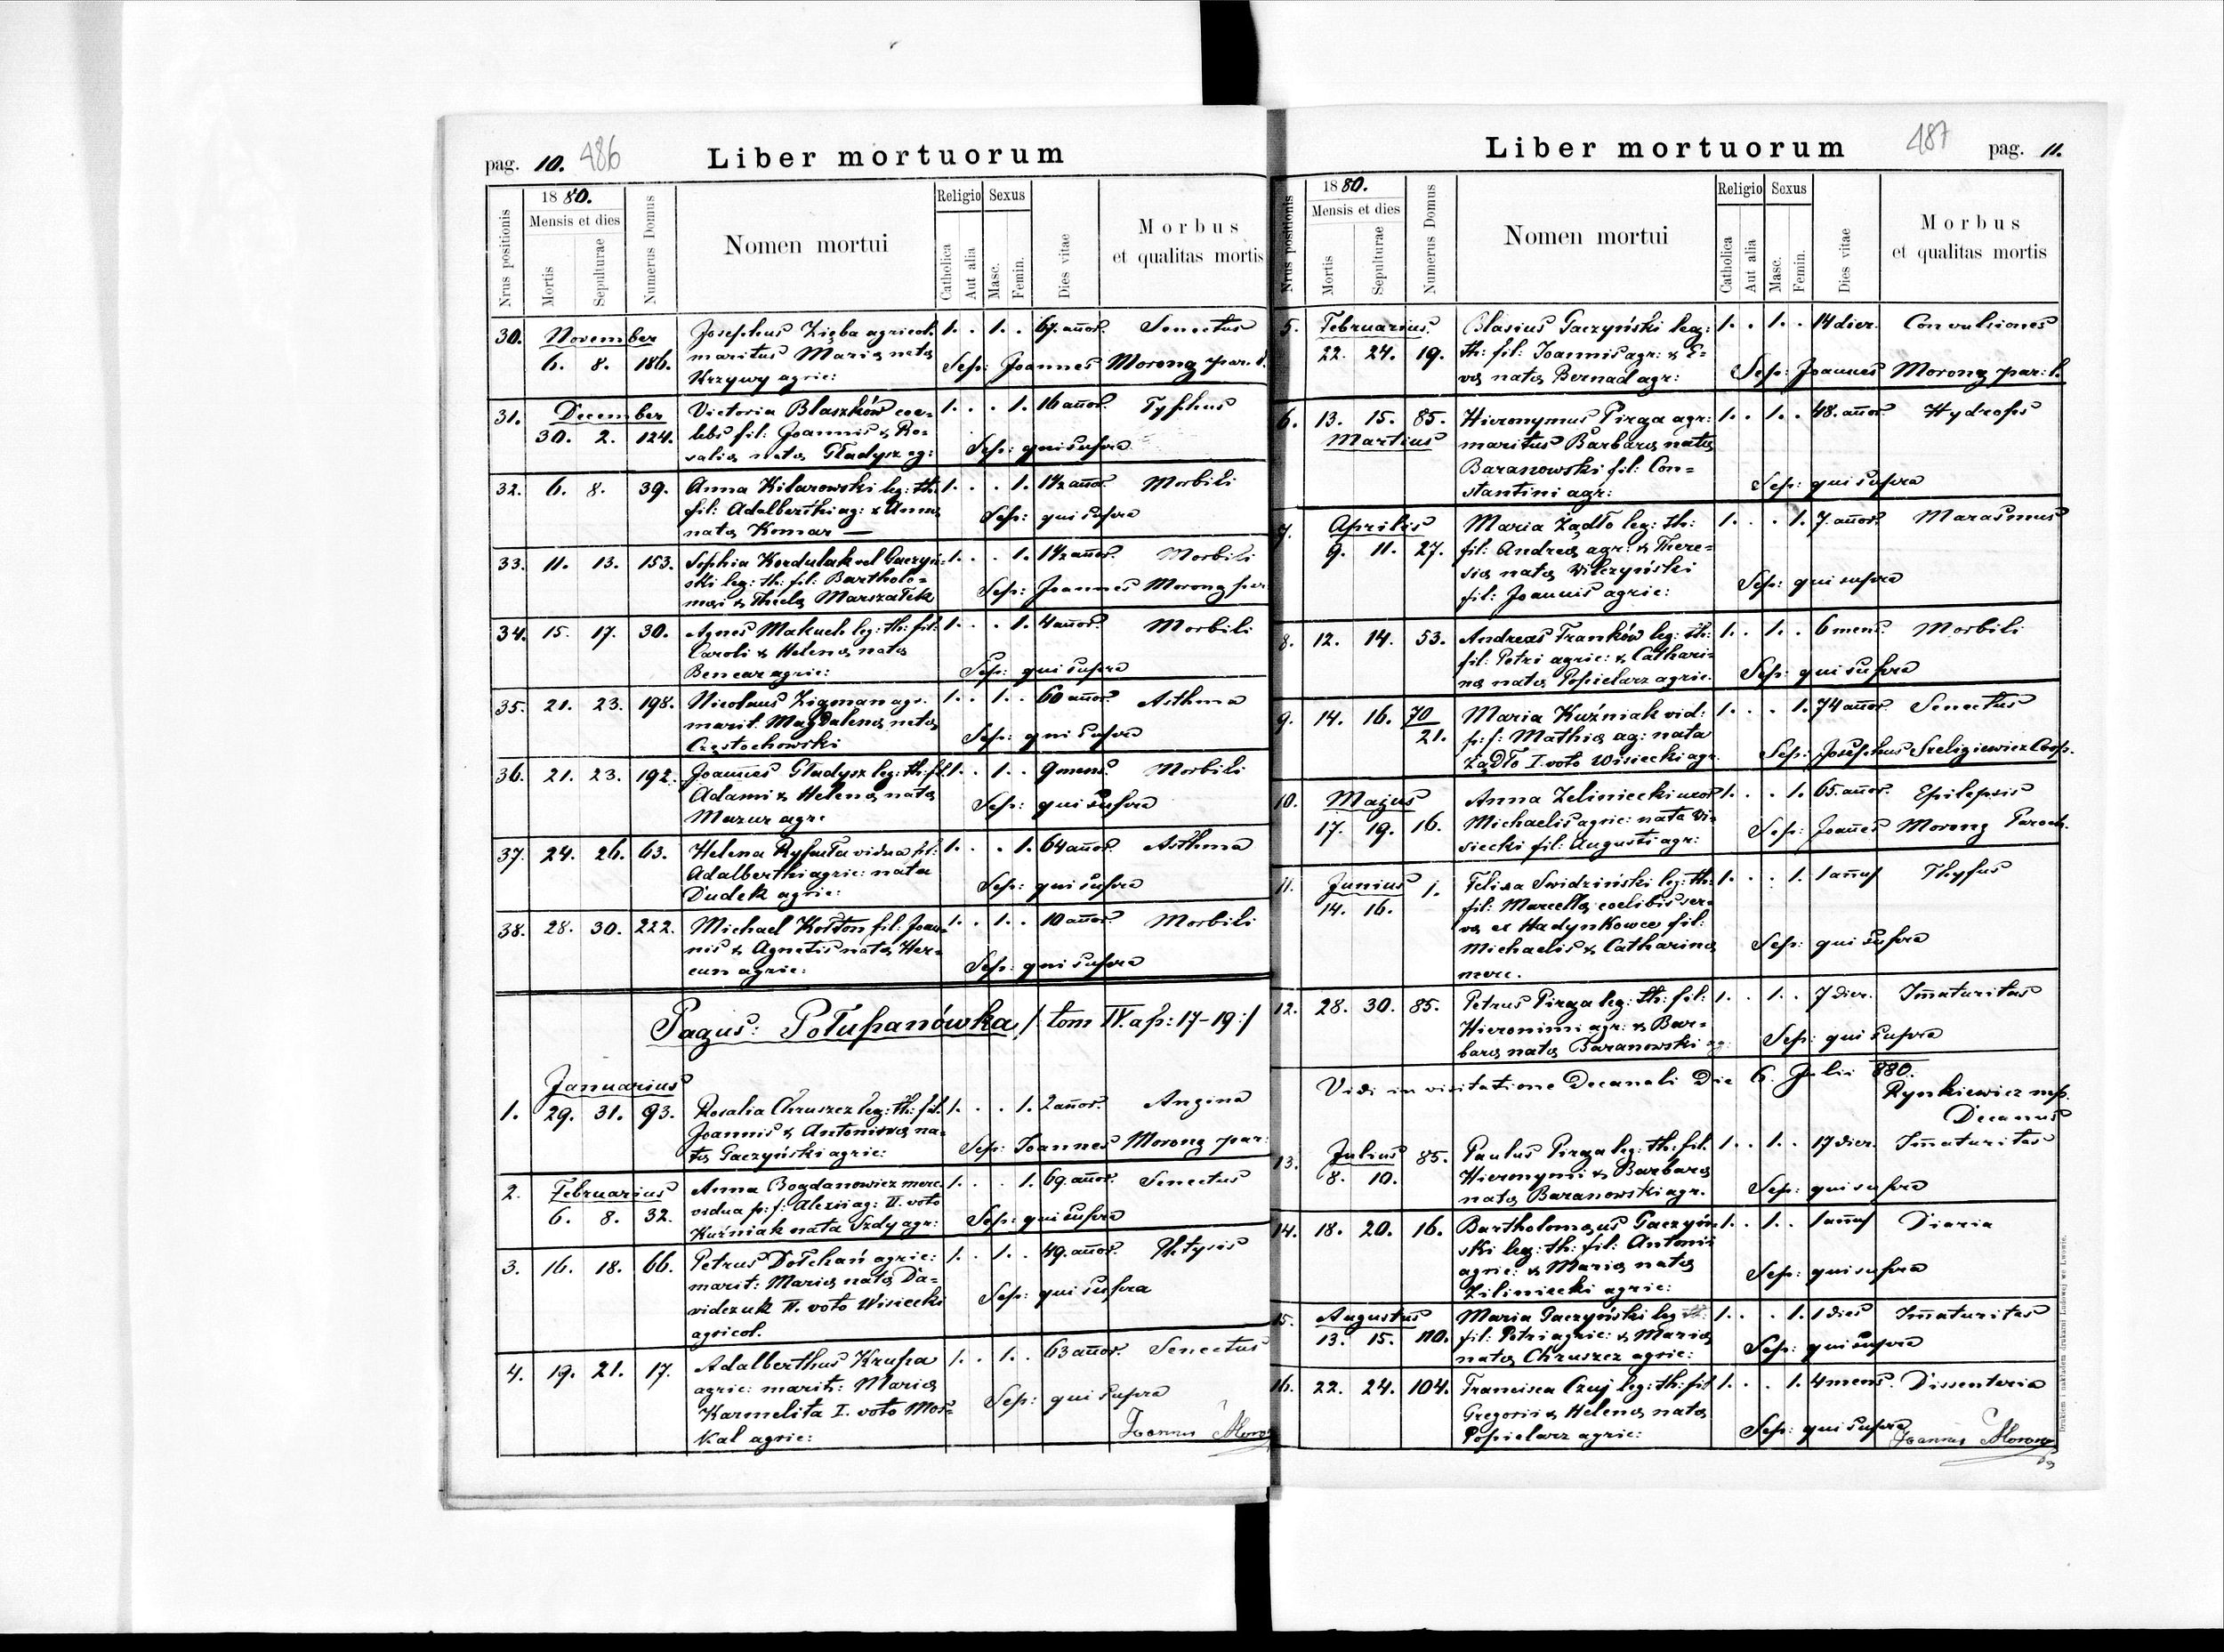 pag. 10. 486 Liber mortuorum
Nrus positionis
1880.
Mensis et dies
Mortis
Sepulturae
Numerus Domus
Nomen mortui
Religio
Catholica
Aut alia
Sexus
Masc.
Femin.
Dies vitae
Morbus
et qualitas mortis
30. November Josephus Zięba agricol. 1. . 1. . 67. añor. Senectus
6. 8. 186. maritus Mariæ natæ Sep: Joannes Moronz par. l.
Krzywy agric:
31. December Victoria Blaszków coe= 1. . . 1. 16 añor. Typhus
30. 2. 124. lebs fil: Joannis & Ro=
saliæ natæ Gładysz ag: Sep: qui supra
32. 6. 8. 39. Anna Kilarowski leg: th: 1. . . 1. 1½ añor. Morbili
fil: Adalberthi ag: & Annæ Sep: qui supra
natæ Komar —
33. 11. 13. 153. Sophia Kordulak vel Gaczyń= 1. . . 1. 1½ añor. Morbili
ski leg: th: fil: Bartholo=
mæi & Theclæ Marszałek Sep: Joannes Moronz par
34. 15. 17. 30. Agnes Makuch leg: th: fil: 1. . . 1. 4 añor. Morbili
Caroli & Helenæ natæ
Bencar agric: Sep: qui supra
35. 21. 23. 198. Nicolaus Zigman agr. 1. . 1. . 60 añor. Asthma
marit. Magdalenæ natæ
Częstochowski Sep: qui supra
36. 21. 23. 192. Joannes Gładysz leg: th: fil 1. . 1. . 9 mens. Morbili
Adami & Helenæ natæ Sep: qui supra
Mazur agr:
37. 24. 26. 63. Helena Ryfuła vidua fil: 1. . . 1. 64 añor. Asthma
Adalberthi agric: nata
Dudek agric: Sep: qui supra
38. 28. 30. 222. Michael Kołton fil: Joan= 1. . 1. . 10 añor. Morbili
nis & Agnetis natæ Her=
cun agric: Sep: qui supra
Pagus: Połupanówka /: tom IV. a p: 17-19 :/
Januarius
1. 29. 31. 93. Rosalia Chruszcz leg: th: fil. 1. . . 1. 2 añor. Angina
Joannis & Antoninæ na=
tæ Gaczyński agric: Sep: Joannes Moronz par:
2. Februarius Anna Bogdanowicz merc. 1. . . 1. 69. añor. Senectus
6. 8. 32. vidua p: f: Alexii ag: II. voto
Kuźniak nata Szdy agr: Sep: qui supra
3. 16. 18. 66. Petrus Dołchań agric: 1. . 1. . 49. añor. Phtysis
marit: Mariæ natæ Da=
widczuk II. voto Wisiecki Sep: qui supra
agricol.
4. 19. 21. 17. Adalberthus Krupa 1. . 1. . 63 añor. Senectus
agric: marit: Mariæ
Karmelita I. voto Mos= Sep: qui supra
kal agric: Joannes Moronz
487 Liber mortuorum pag. 11.
Nrus positionis
1880.
Mensis et dies
Mortis
Sepulturae
Numerus Domus
Nomen mortui
Religio
Catholica
Aut alia
Sexus
Masc.
Femin.
Dies vitae
Morbus
et qualitas mortis
5. Februarius. Blasius Gaczyński leg: 1. . 1. . 14 dier. Convulsiones
22. 24. 19. th: fil: Joannis agr: & E=
væ natæ Bernad agr: Sep: Joannes Moronz par: l.
6. 13. 15. 85. Hieronymus Pirga agr: 1. . 1. . 48. añor. Hydrops
Martius maritus Barbaræ natæ
Baranowski fil: Con=
stantini agr: Sep: qui supra
7. Aprilis Maria Żądło leg: th: 1. . . 1. 7. añor. Marasmus
9. 11. 27. fil: Andreæ agr: & There=
siæ natæ Wilczyński
fil: Joannis agric: Sep: qui supra
8. 12. 14. 53. Andreas Franków leg: th: 1. . 1. . 6 mens. Morbili
fil: Petri agric: & Cathari=
næ natæ Popielarz agric. Sep: qui supra
9. 14. 16. 70 Maria Kuźniak vid: 1. . . 1. 74 añor. Senectus
21. p: f: Mathiæ ag: nata
Żądło I. voto Wisiecki agr. Sep: Josephus Szeligiewicz Coop.
10. Majus Anna Zeliniecki uxor 1. . . 1. 65. añor. Epilepsis
17. 19. 16. Michaelis agric: nata Wi=
siecki fil: Augusti agr: Sep: Joañes Moronz Paroch.
11. Junius 1. Felixa Swidziński leg: th: 1. . . 1. 1 añus Thypus
14. 16. fil: Marcellæ coelibis ser=
væ ex Hadynkowce fil:
Michaelis & Catharinæ Sep: qui supra
merc.
12. 28. 30. 85. Petrus Pirga leg: th: fil: 1. . 1. . 7 dier. Imaturitas
Hieronimi agr: & Bar=
baræ natæ Baranowski ag: Sep: qui supra
Vidi in visitatione Decanali Die 6. Julii 880.
Rynkiewicz mp.
Decanus
13. Julius 85. Paulus Pirga leg: th: fil. 1. . 1. . 17 dier. Imaturitas
8. 10. Hieronymi & Barbaræ
natæ Baranowski agr. Sep: qui supra
14. 18. 20. 16. Bartholomæus Gaczyń= 1. . 1. . 1 añus Diaria
ski leg: th: fil: Antonii
agric: & Mariæ natæ Sep: qui supra
Ziliniecki agric:
15. Augustus Maria Gaczyński leg th: 1. . . 1. 1 dies Imaturitas
13. 15. 110. fil: Petri agric: & Mariæ
natæ Chruszcz agric: Sep: qui supra
16. 22. 24. 104. Francisca Czuj leg: th: fil 1. . . 1. 4 mens. Dissenteria
Gregorii & Helenæ natæ
Popielarz agric: Sep: qui supra Joannes Moronz
Drukiem i nakładem drukarni Ludowej we Lwowie.